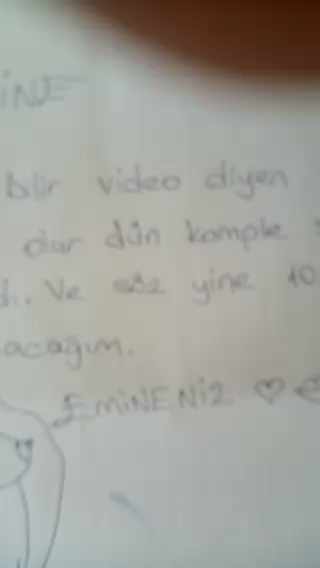 blir video diyen
dur dün komple
Ve söz yine 10
acağım.
EMİNENİZ ♡